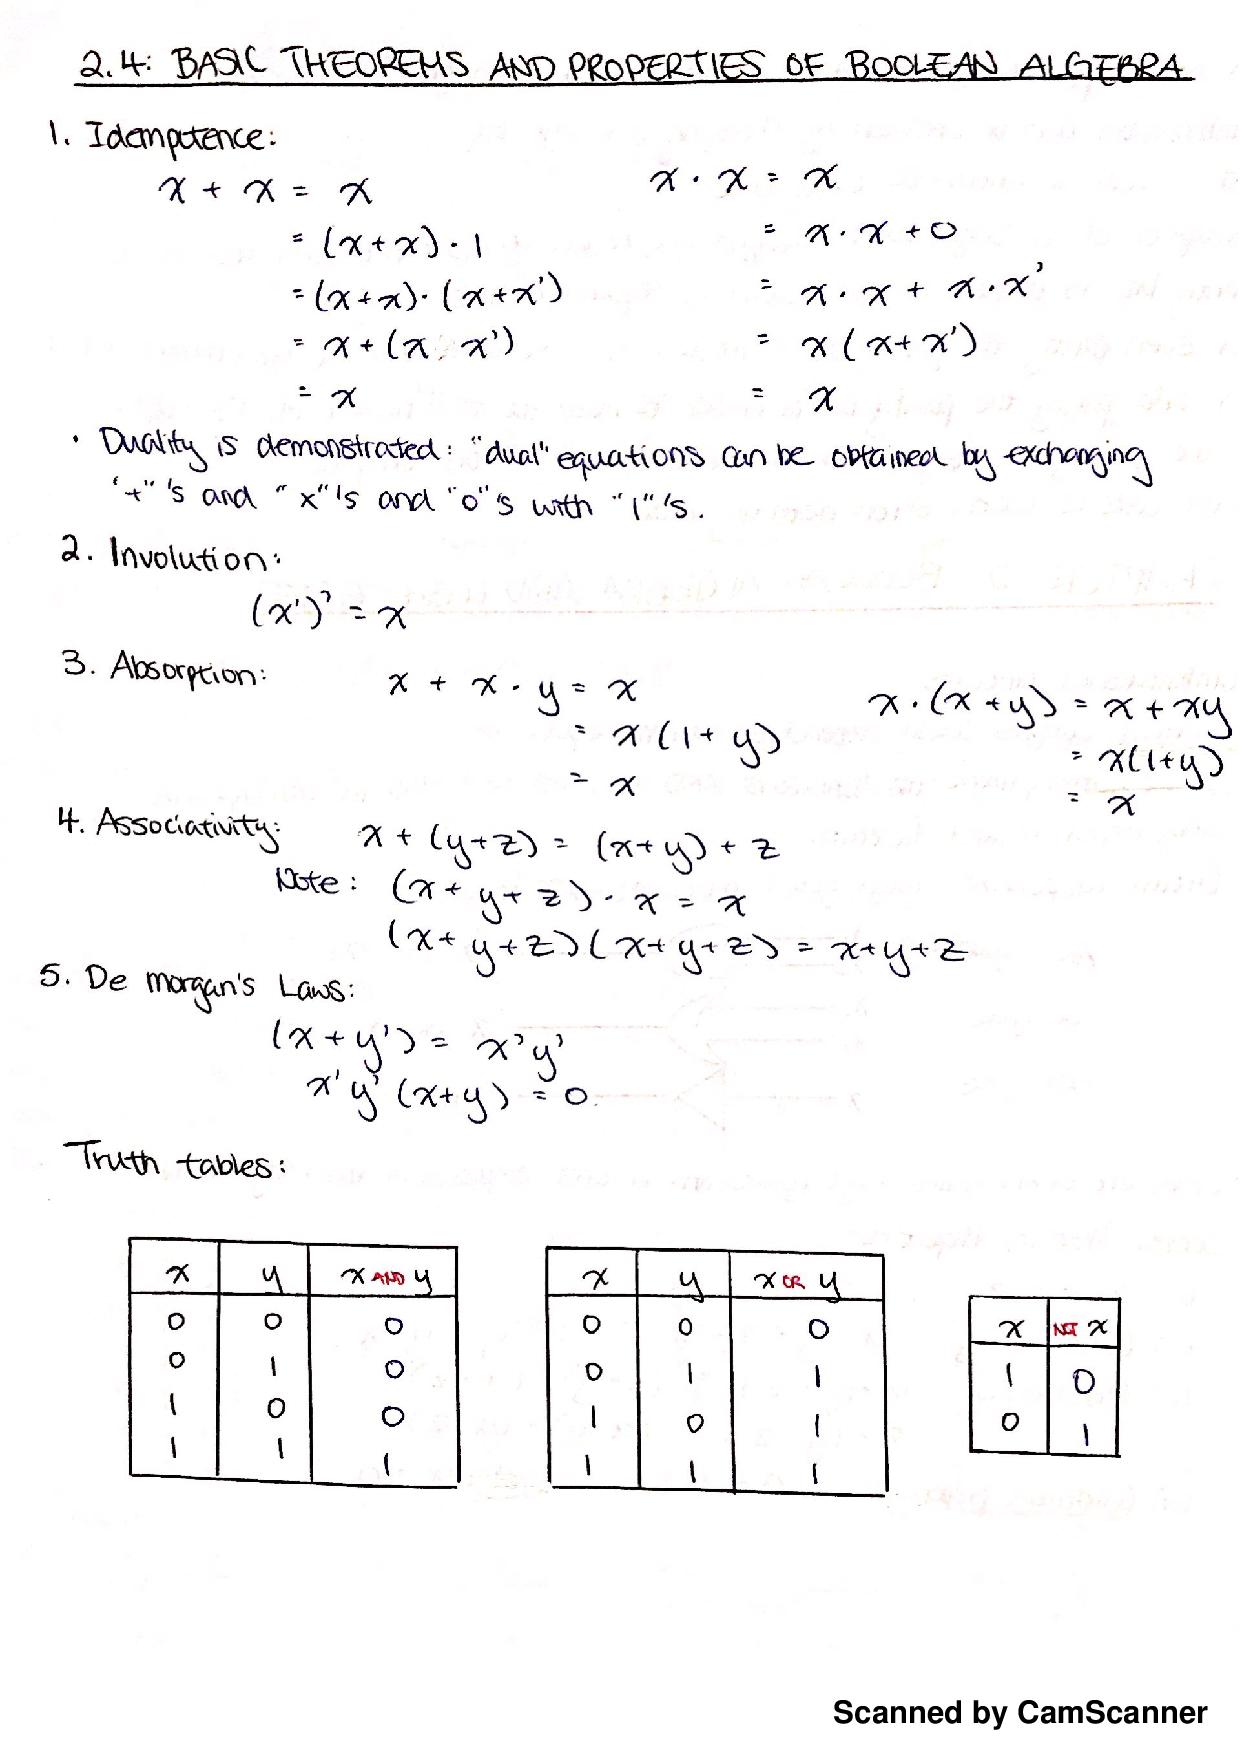 2.4: BASIC THEOREMS AND PROPERTIES OF BOOLEAN ALGEBRA
1. Idempotence:
x + x = x
= (x+x) · 1
= (x+x) · (x+x')
= x + (x · x')
= x
x · x = x
= x · x + 0
= x · x + x · x'
= x (x + x')
= x
· Duality is demonstrated: "dual" equations can be obtained by exchanging
"+"'s and "x"'s and "0"'s with "1"'s.
2. Involution:
(x')' = x
3. Absorption:
x + x · y = x
= x (1 + y)
= x
x · (x + y) = x + xy
= x(1+y)
= x
4. Associativity:
x + (y+z) = (x+y) + z
Note: (x + y + z) · x = x
(x + y + z) (x + y + z) = x + y + z
5. De morgan's Laws:
(x + y') = x'y'
x'y' (x+y) = 0.
Truth tables:
x y x AND y
0 0 0
0 1 0
1 0 0
1 1 1
x y x OR y
0 0 0
0 1 1
1 0 1
1 1 1
x NOT x
1 0
0 1
Scanned by CamScanner